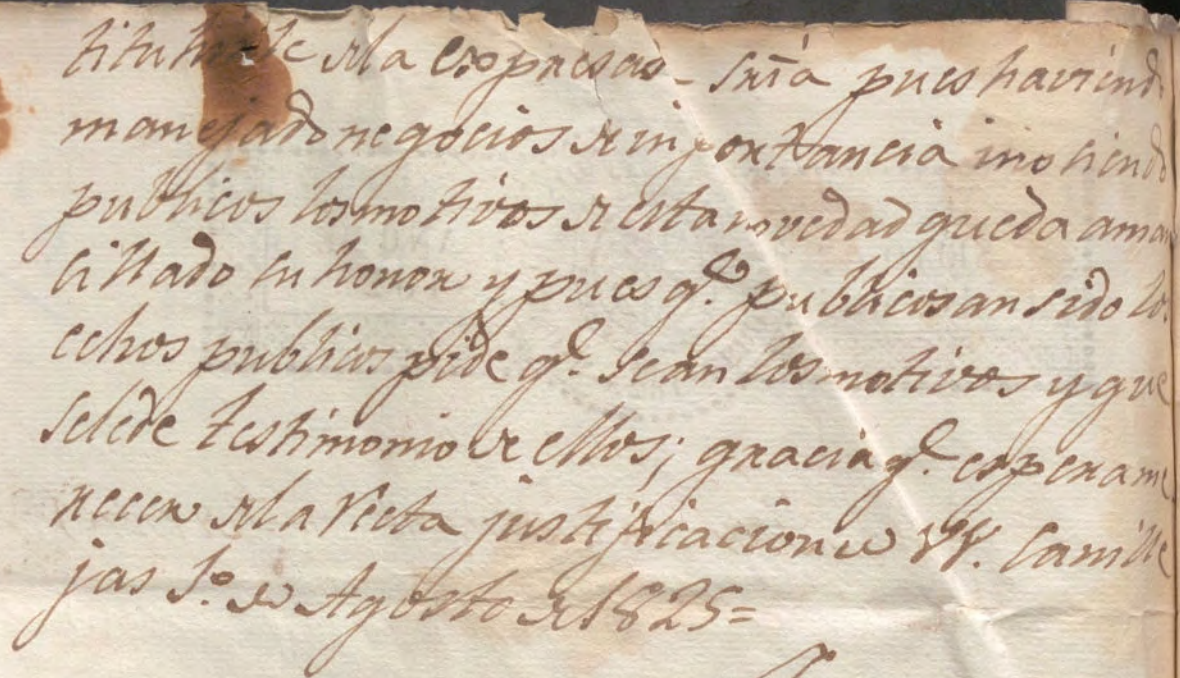 de la expresa Sria pues haviend
manejado negocios de importancia i no siendo
publicos los motivos de esta novedad queda aman
cillado su honor y pues q.e publicos an sido los
echos publicos pide q.e sean los motivos y que
se le de testimonio de ellos; gracia q.e espera me
recer de la recta justificacion de VV. Canille
jas 1.o de Agosto de 1825=